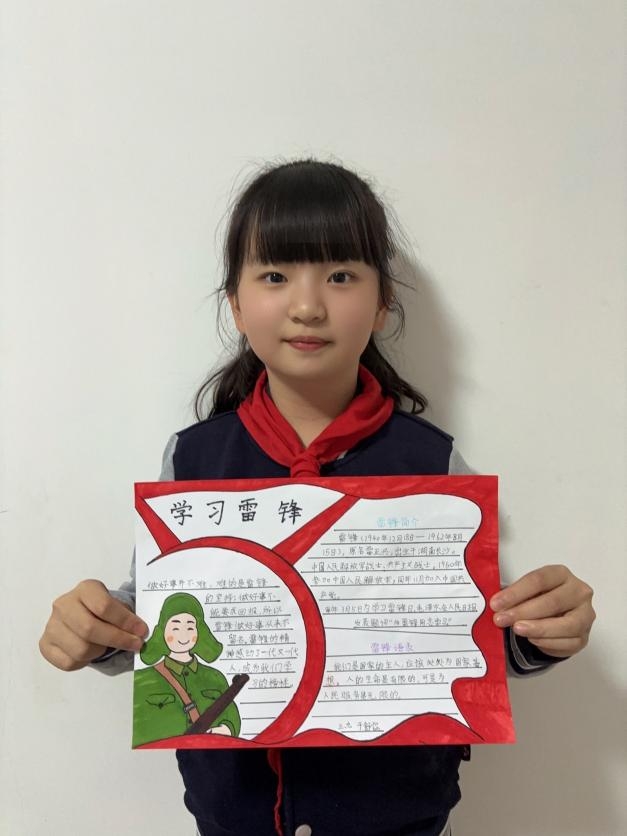 学习雷锋
做好事并不难,难的是雷锋
的坚持:做好事不
能要求回报,所以
雷锋做好事从来不
留名,雷锋的精
神感动了一代又一代
人,成为我们学
习的榜样。
雷锋简介
雷锋(1940年12月18日—1962年8月
15日),原名雷正兴,出生于湖南长沙。
中国人民解放军战士,共产主义战士。1960年
参加中国人民解放军,同年11月加入中国共
产党。
每年3月5日为学习雷锋日,毛泽东在人民日报
发表题词“向雷锋同志学习”
雷锋语录
我们是国家的主人,应该处处为国家着
想。人的生命是有限的,可是为
人民服务是无限的。